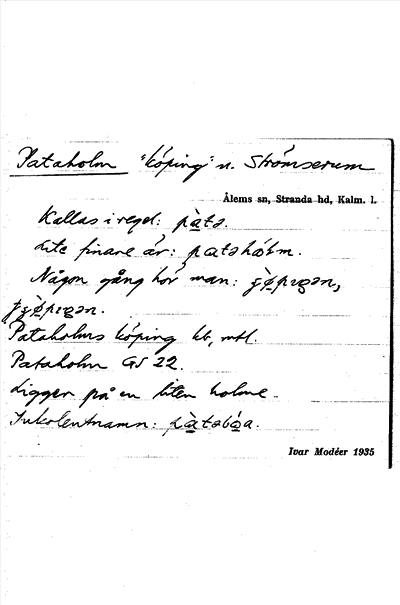 Pataholm "köping" n. Strömserum
Ålems sn, Stranda hd, Kalm. l.
Kallas i regel: pàtə.
Lite finare är: patəhólm.
Någon gång hör man:
Pataholms köping kb, mtl.
Pataholm GS 22.
Ligger på en liten holme.
Inkolentnamn: pàtəbóa.
Ivar Modéer 1935